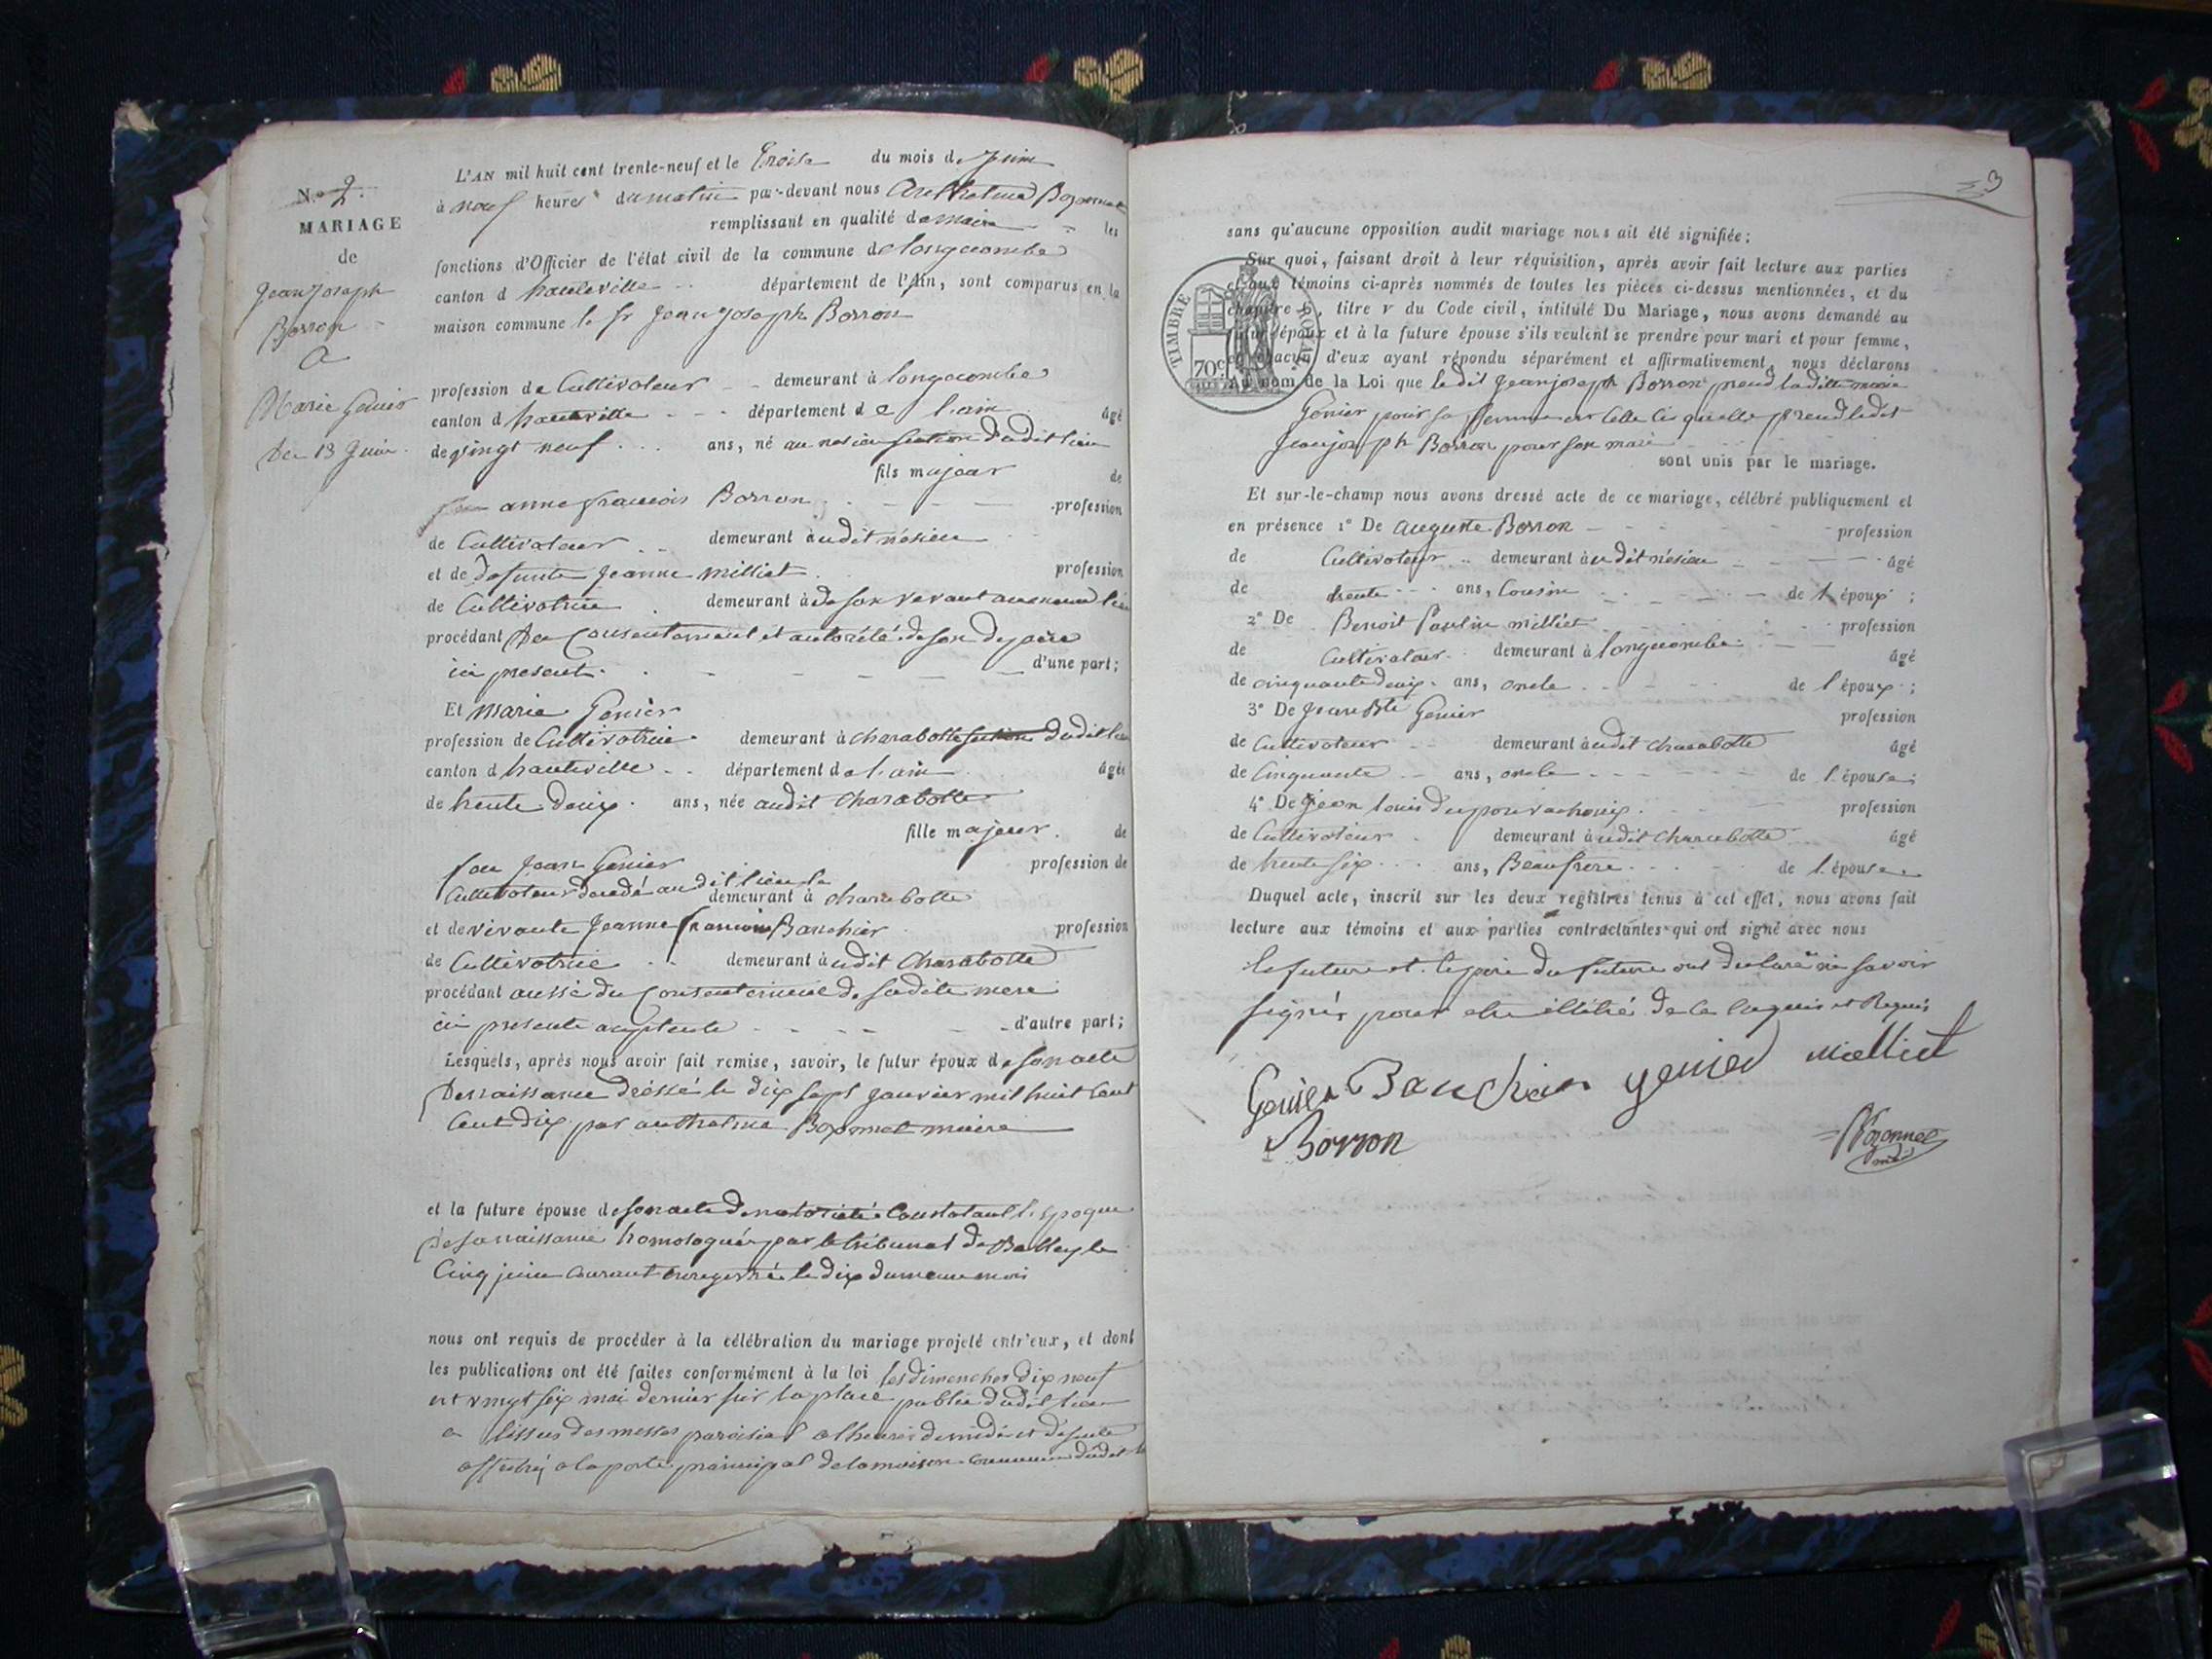 N.o 2.
MARIAGE
de
Jean Joseph
Borron
a
Marie Genier
du 13 Juin.
L'AN mil huit cent trente-neuf et le treise du mois de Juin
à neuf heures du matin par-devant nous Anthelme Bozonnet
remplissant en qualité de maire les
fonctions d'Officier de l'état civil de la commune de longecombe
canton d hauteville département de l'Ain, sont comparus en la
maison commune le Sr Jean Joseph Borron
profession de Cultivateur demeurant à longecombe
canton d hauteville département de l'ain âgé
de vingt neuf ans, né au section dudit lieu
fils majeur de
anne françois Borron profession
de Cultivateur demeurant audit
et de defunte Jeanne Milliet profession
de Cultivatrice demeurant à de son vivant au lieu
procédant du Consentement et autorité de son père
ici present d'une part;
Et Marie Genier
profession de Cultivatrice demeurant à charabotte section dudit lieu
canton d hauteville département de l'ain âgée
de trente deux ans, née audit Charabotte
fille majeur de
feu Jean Genier profession de
Cultivateur décédé audit lieu
demeurant à charabotte
et de vivante Jeanne françoise Banchier profession
de Cultivatrice demeurant audit Charabotte
procédant aussi du Consentement de sadite mere
ici presente d'autre part;
Lesquels, après nous avoir fait remise, savoir, le futur époux de son acte
De naissance dréssé le dix sept Janvier mil huit Cent
Cent dix par anthelme Bozonnet maire
et la future épouse de son acte de notoriété Constatant l'epoque
de sa naissance homologuée par le tribunal de Belley le
Cinq juin Courant enregistré le dix du meme mois
nous ont requis de procéder à la célébration du mariage projeté entr'eux, et dont
les publications ont été faites conformément à la loi les dimanches dix neuf
et vingt six mai dernier sur la place public dudit lieu
a l'issus des messes paroisial a lheure de midi et de suite
affiché a la porte principal de la maison Commune dudit
3
sans qu'aucune opposition audit mariage nous ait été signifiée;
Sur quoi, faisant droit à leur réquisition, après avoir fait lecture aux parties
et aux témoins ci-après nommés de toutes les pièces ci-dessus mentionnées, et du
chapitre 6, titre v du Code civil, intitulé Du Mariage, nous avons demandé au
futur époux et à la future épouse s'ils veulent se prendre pour mari et pour femme,
et chacun d'eux ayant répondu séparément et affirmativement, nous déclarons
Au nom de la Loi que ledit Jean joseph Borron prend ladite marie
Genier pour sa femme et celle ci quelle prend ledit
Jean joseph Borron pour son mari
sont unis par le mariage.
TIMBRE ROYAL
70c
Et sur-le-champ nous avons dressé acte de ce mariage, célébré publiquement et
en présence 1° De Auguste Borron profession
de Cultivateur demeurant audit âgé
de trente ans, Cousin de l'époux;
2° De Benoit Paulin milliet profession
de Cultivateur demeurant à longecombe âgé
de cinquante deux ans, oncle de l'époux;
3° De Jean Bte Genier profession
de Cultivateur demeurant audit Charabotte âgé
de Cinquante ans, oncle de l'épouse;
4° De Jean louis profession
de Cultivateur demeurant audit Charabotte âgé
de trente six ans, Beaufrere de l'épouse
Duquel acte, inscrit sur les deux registres tenus à cet effet, nous avons fait
lecture aux témoins et aux parties contractantes qui ont signé avec nous
le future et le pere du future ont déclaré ne savoir
signer pour etre illétré de ce enquis et Requis
Genier Banchier genier Milliet
Borron
Bozonnet